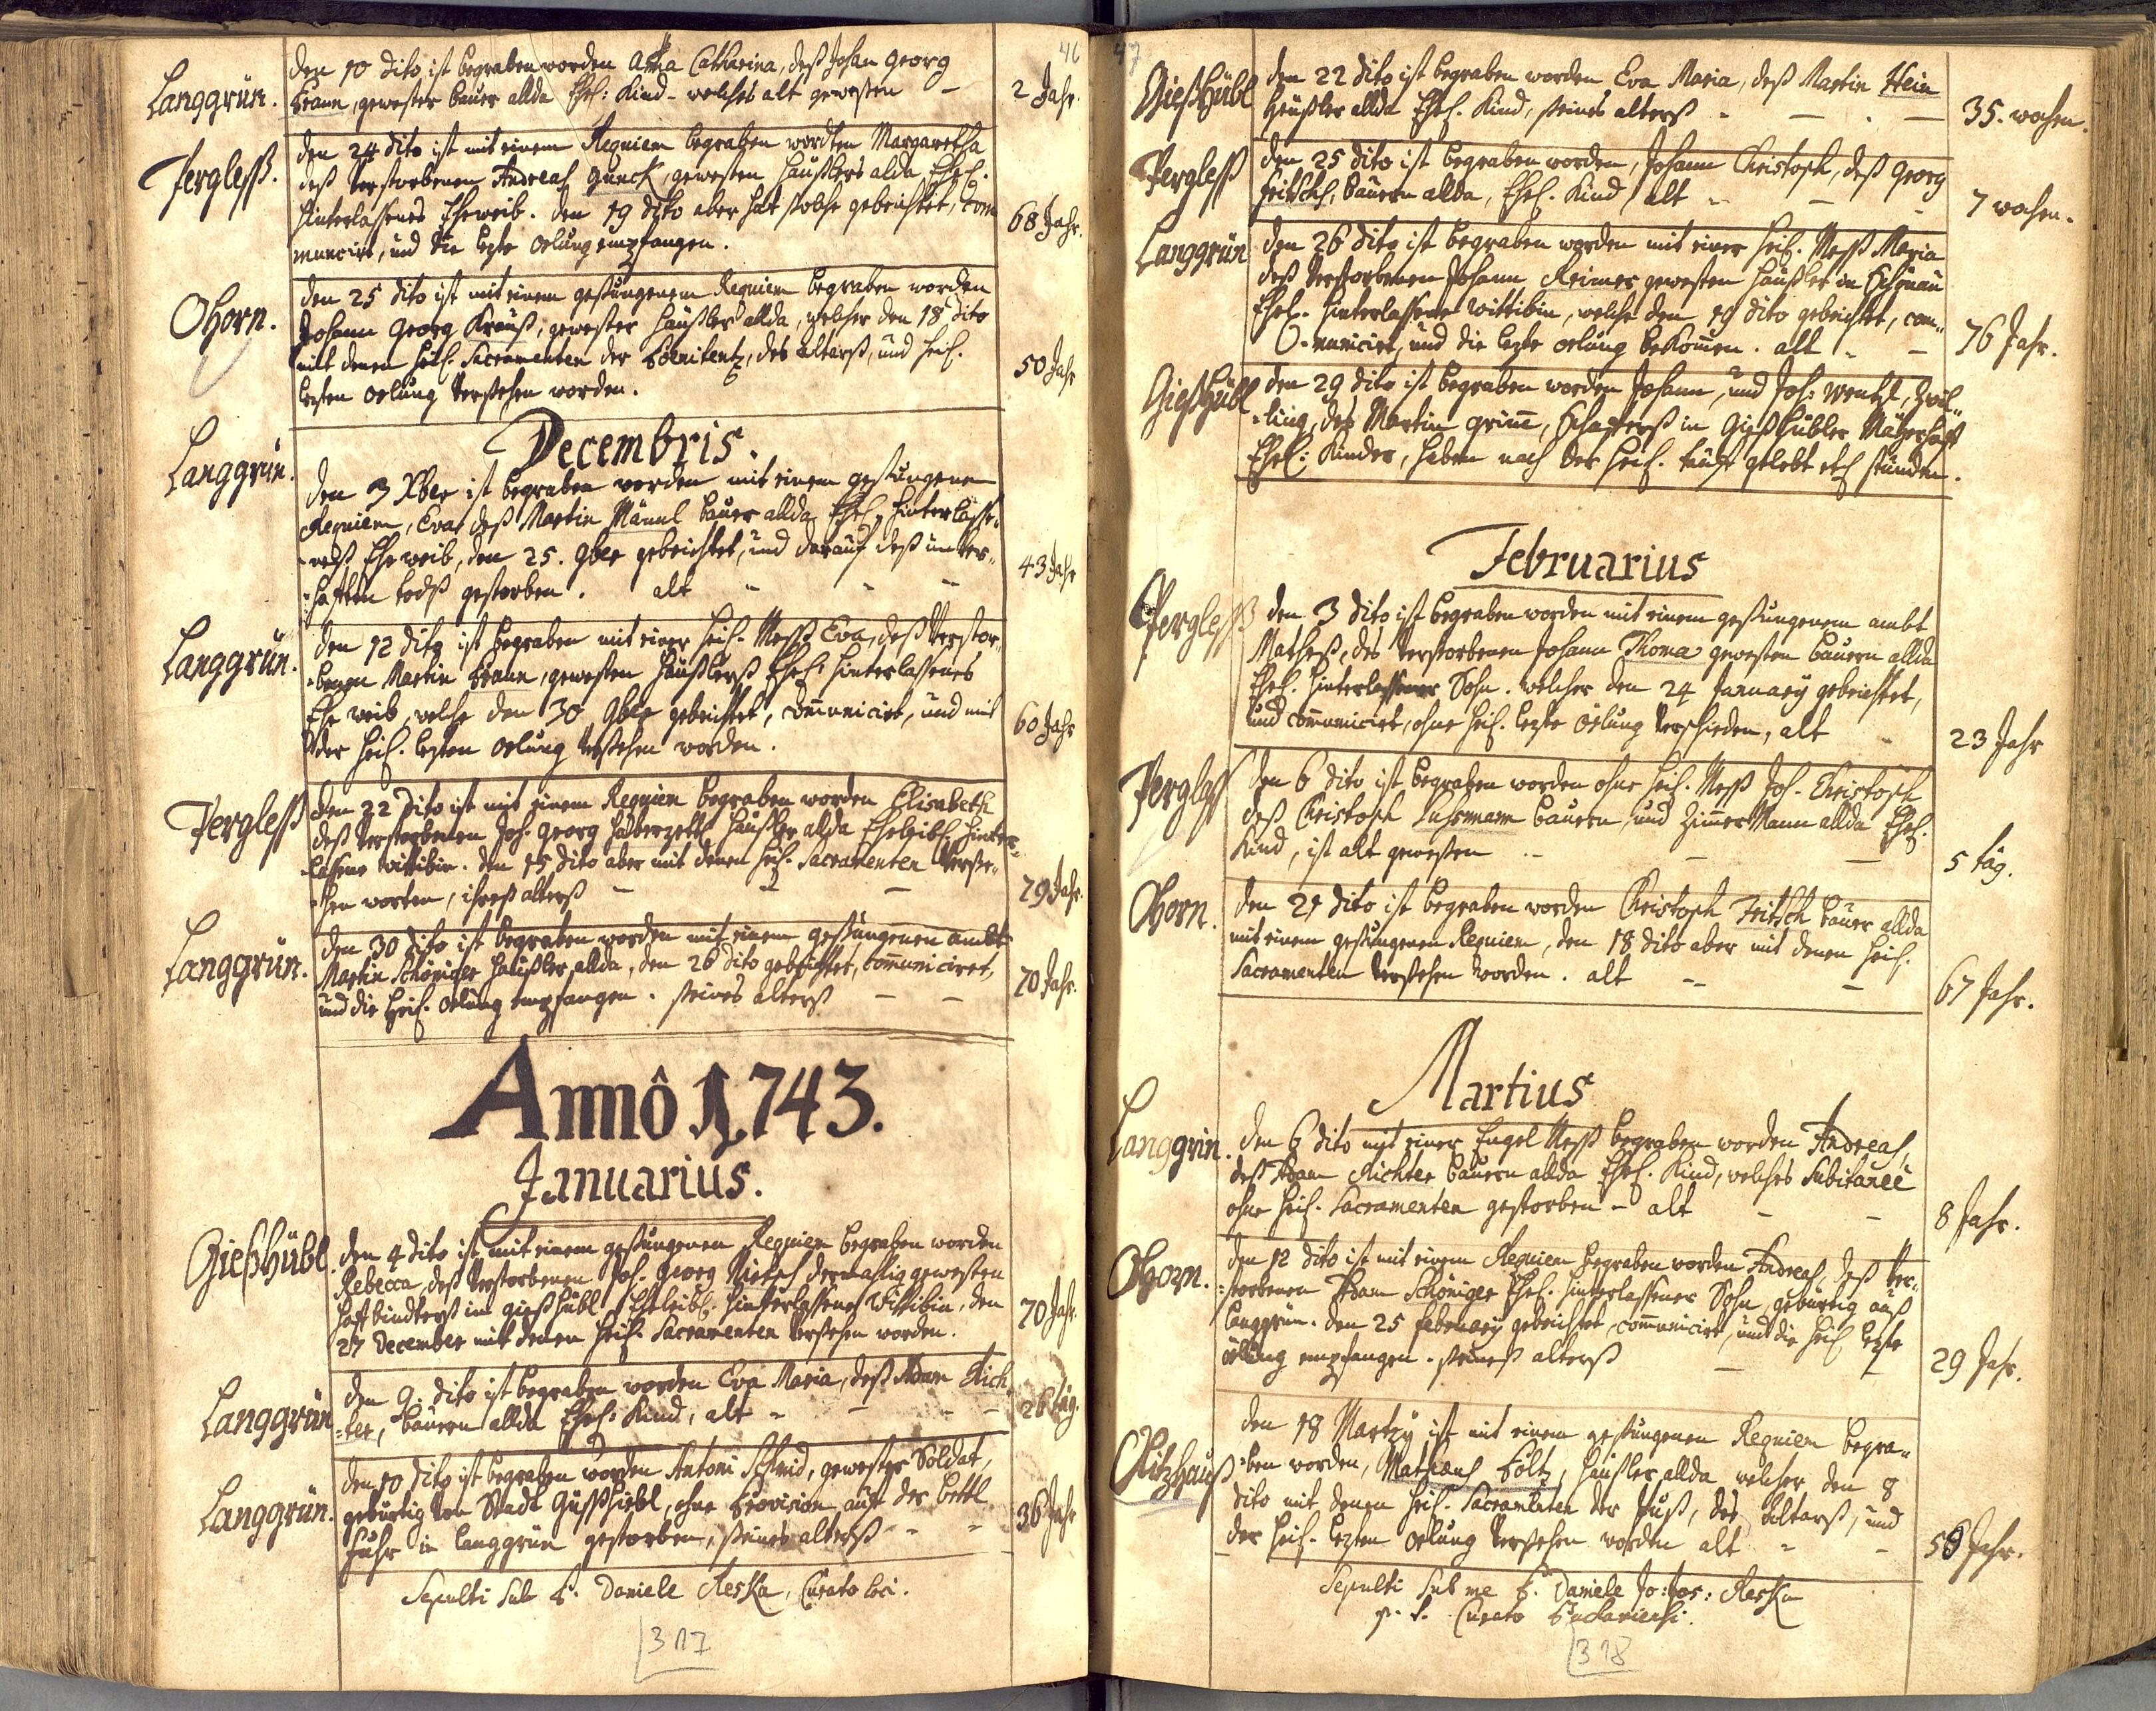 46
Langgrün.
den 10 dito, ist begraben worden Anna Catharina, deß Johan Georg
Braun, gewester bauer allda Ehel: Kind - welches alt gewesen -
2 Jahr.
Pergleß.
den 24 dito ist mit einem Requiem begraben worden Margaretha
deß verstorbenen Andreas gewesten Häußlers alda Ehel.
hinterlassenes Eheweib. den 19 dito aber hat solche gebeichtet, com
municirt, und die lezte oelung empfangen.
68 Jahr.
Ohorn.
den 25 dito ist mit einem gesungenem Requiem begraben worden
Johann Georg Krauß, gewester Häußler allda, welcher den 18 dito
mit denen heil. Sacramenten der Poenitentz, des altarß, und heil.
lezten oelung versehen worden.
50 Jahr
Decembris.
Langgrün.
den 3 Xber ist begraben worden mit einem gesungenen
Requiem, Eva deß Martin Männl bauer allda Ehel. hinterlasse-
-neß Eheweib, den 25. 9ber gebeichtet, und darauf deß unver-
-hofften todß gestorben. alt - - -
43 Jahr
Langgrün.
den 12 dito ist begraben mit einer heil. Meß Eva, deß verstor-
-benen Martin Braun, gewesten Häußlerß Ehel. hinterlassenes
Ehe weib, welche den 30 9ber gebeichtet, communicirt, und mit
der heil. lezten oelung versehen worden.
60 Jahr
Pergleß
den 22 dito ist mit einem Requiem begraben worden Elisabeth
deß verstorbenen Joh. Georg Haberzettl Häußler allda Eheleibl. hinter-
-lassene wittibin. den 15 dito aber mit denen heil. Sacramenten verse-
-hen worten, ihreß alterß - - -
79 Jahr.
Langgrün.
den 30 dito ist begraben worden mit einem gesungenen ambt
Martin Schöniger Häußler allda, den 26 dito gebeichtet, communiciret,
und die heil. oelung empfangen. seines alterß - -
70 Jahr.
Annô 1743.
Januarius.
Gießhübl.
den 4 dito ist mit einem gesungenen Requiem begraben worden
Rebecca, deß verstorbenen Joh. Georg gewesten
in gießhübl Eheleibl. hinterlassene Wittibin, den
27 December mit denen heil. Sacramenten versehen worden.
70 Jahr.
Langgrün
den 9. dito ist begraben worden Eva Maria, deß Adam Rich
-ter, bauern allda Ehel: Kind, alt - - - -
26 täg.
Langgrün.
den 10 dito ist begraben worden Antoni Schmid, gewester Soldat,
gebürtig von Stadt Gußhiebl, ohne Provision auf der bettl
fuhr in langgrün gestorben, seines alterß - -
36 Jahr
Sepulti sub P. Daniele Reska, Curato loci.
317
47
Gießhübl
den 22 dito ist begraben worden Eva Maria, deß Martin Hein
Häußler allda Ehel. Kind, seines alterß - - - -
35. wochen.
Pergleß
den 25 dito ist begraben worden, Johann Christoph, deß Georg
Fritsch, bauern allda, Ehel. Kind alt - - -
7 wochen.
Langgrün
den 26 dito ist begraben worden mit einer heil. Meß Maria
deß verstorbenen Johann Reimer gewesten Häußler in Schönau
Ehel. hinterlassene Wittibin, welche den 19 dito gebeichtet, com-
-municirt, und die lezte oelung bekommen. alt - -
76 Jahr.
Gießhübl
den 29 dito ist begraben worden Johann, und Joh: Wentzl, Zwil-
-ling, des Martin Grimm, Schafferß in Gießhübler Mayerhoff
Ehel: Kinder, haben nach der heil. tauff gelebt etl stunden.
Februarius
Pergleß
den 3 dito ist begraben worden mit einem gesungenem ambt
Matheß, des verstorbenen Johann Thoma gewesten bauern allda
Ehel. hinterlassener Sohn. welcher den 24 January gebeichtet,
und communicirt, ohne heil. lezte oelung verschieden, alt
23 Jahr
Pergleß
den 6 dito ist begraben worden ohne heil. Meß Joh. Christoph
deß Christoph Luhrmann bauern, und Zimmermann allda Ehel.
Kind, ist alt gewesen - - -
5 täg.
Ohorn.
den 21 dito ist begraben worden Christoph Fritsch bauer allda
mit einem gesungenen Requiem, den 18 dito aber mit denen heil.
Sacramenten versehen worden. alt - -
67 Jahr.
Martius
Langgrün.
den 6 dito mit einer Engel Meß begraben worden Andreas,
deß Adam Richter bauern allda Ehel. Kind, welches Subitaneè
ohne heil. Sacramenten gestorben - alt - -
8 Jahr.
Ohorn.
den 12 dito ist mit einem Requiem begraben worden Andreas, deß ver-
-storbenen Adam Schöniger Ehel. hinterlassener Sohn, gebürtig auß
langgrün. den 25 february gebeichtet, communicirt, und die heil. lezte
ölung empfangen. seineß alterß - -
29 Jahr.
Ritzhauß
den 18 Marty ist mit einem gesungenen Requiem begra-
-ben worden, Matheus Poltz, Häußler allda welcher den 8
dito mit denen heil. Sacramenten der Buß, des altarß, und
der heil. lezten oelung versehen worden alt - -
58 Jahr.
Sepulti sub me P. Daniele Jo: Jos: Reska
p. t. Curato Buchaviensi.
318